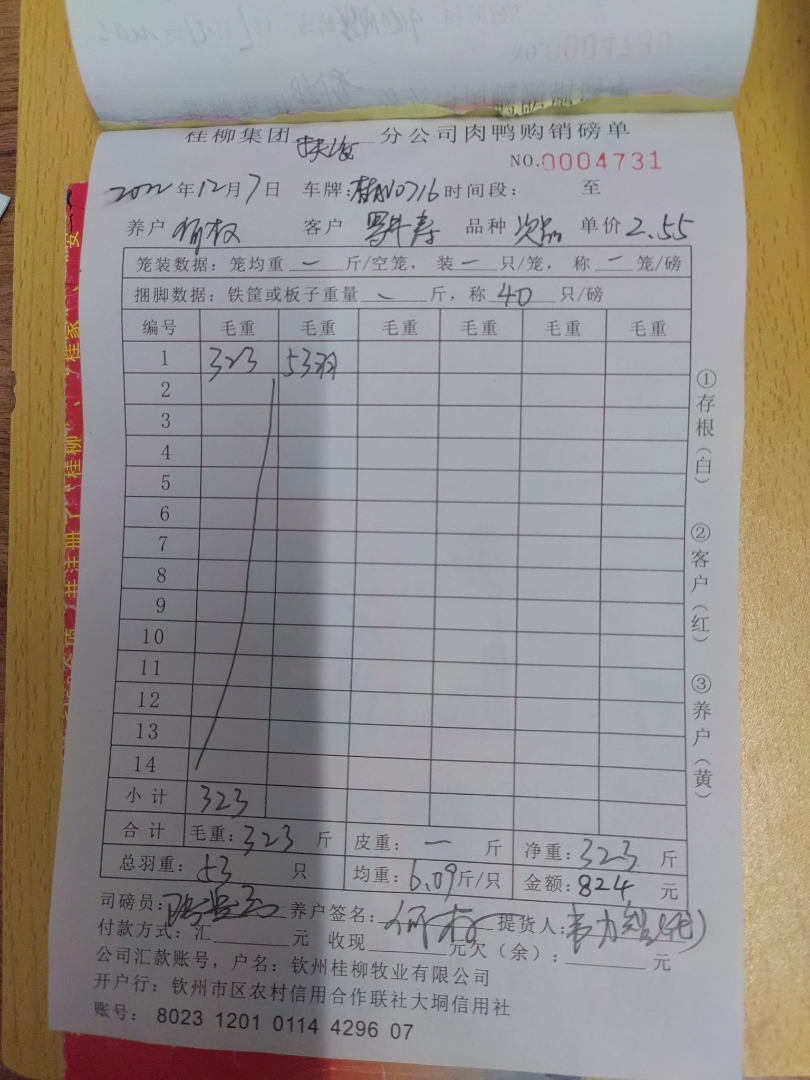 桂柳集团 分公司肉鸭购销磅单
NO.0004731
2022年12月7日 车牌:桂N0716 时间段: 至
养户 何权 客户 品种 次品 单价 2.55
笼装数据:笼均重 一 斤/空笼,装 一 只/笼,称 一 笼/磅
捆脚数据:铁筐或板子重量 一 斤,称 40 只/磅
编号 毛重 毛重 毛重 毛重 毛重 毛重
1 323 53羽
2
3
4
5
6
7
8
9
10
11
12
13
14
小计 323
合计 毛重:323 斤 皮重:一 斤 净重:323 斤
总羽重:53 只 均重:6.09斤/只 金额:824 元
司磅员: 养户签名:何权 提货人:
付款方式:汇 元 收现 元欠(余): 元
公司汇款账号,户名:钦州桂柳牧业有限公司
开户行:钦州市区农村信用合作联社大垌信用社
账号: 8023 1201 0114 4296 07
①存根(白)
②客户(红)
③养户(黄)